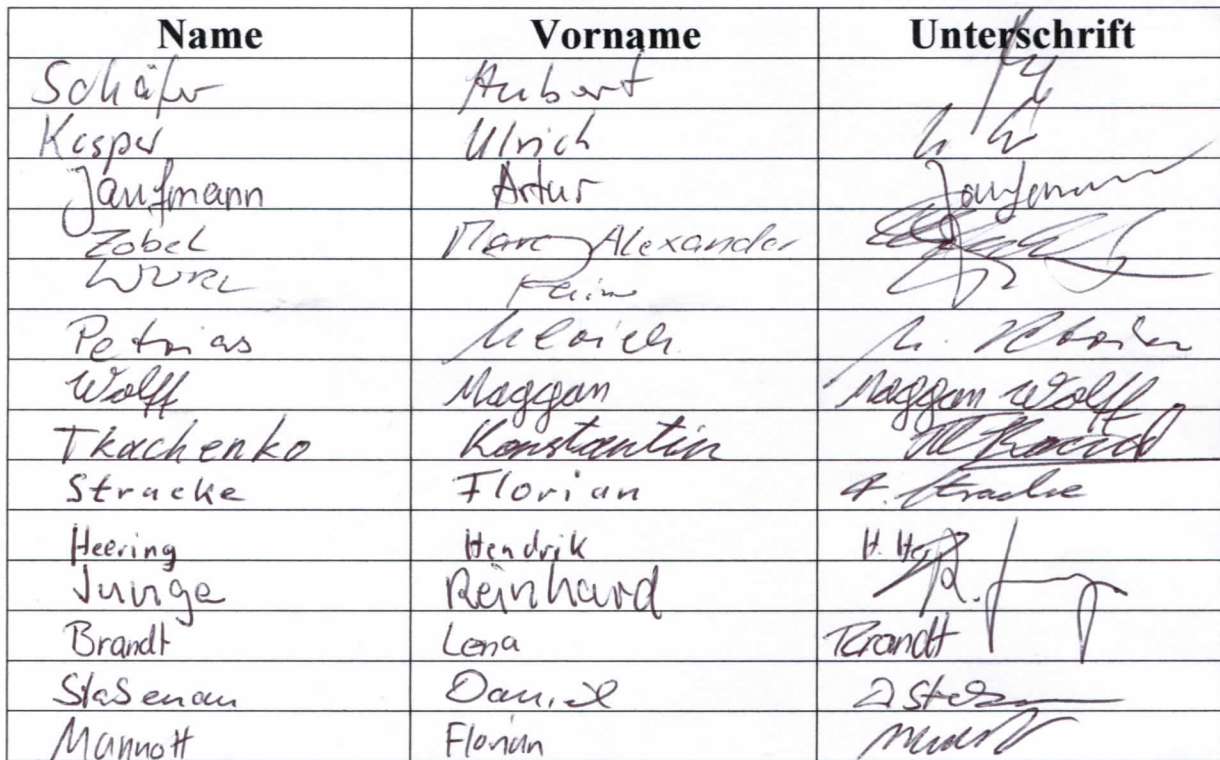 Name Vorname Unterschrift
Schäfer Hubert
Kasper Ulrich
Jaufmann Artur Jaufmann
Zobel Marc Alexander
WURL
Petrias Ulrich
Wolff Maggan Maggan Wolff
Tkachenko Konstantin
Stracke Florian F. Stracke
Heering Hendrik H. He
Junge Reinhard R. Jung
Brandt Lena Brandt
Staßenau Daniel
Mannott Florian